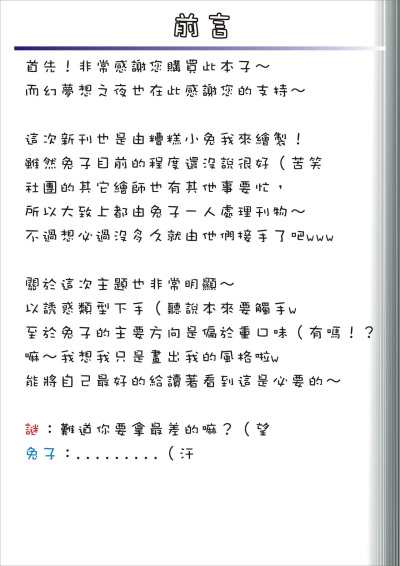 前言
首先！非常感謝您購買此本子～
而幻夢想之夜也在此感謝您的支持～
這次新刊也是由糟糕小兔我來繪製！
雖然兔子目前的程度還沒說很好（苦笑
社團的其它繪師也有其他事要忙，
所以大致上都由兔子一人處理刊物～
不過想必過沒多久就由他們接手了吧www
關於這次主題也非常明顯～
以誘惑類型下手（聽說本來要觸手w
至於兔子的主要方向是偏於重口味（有嗎！？
嘛～我想我只是畫出我的風格啦w
能將自己最好的給讀著看到這是必要的～
謎：難道你要拿最差的嘛？（望
兔子：.........（汗